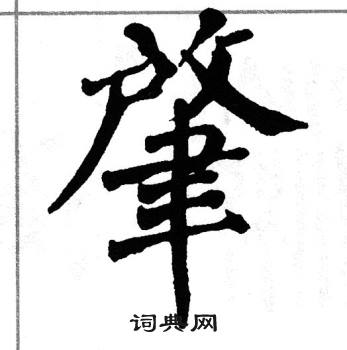 肇
词典网